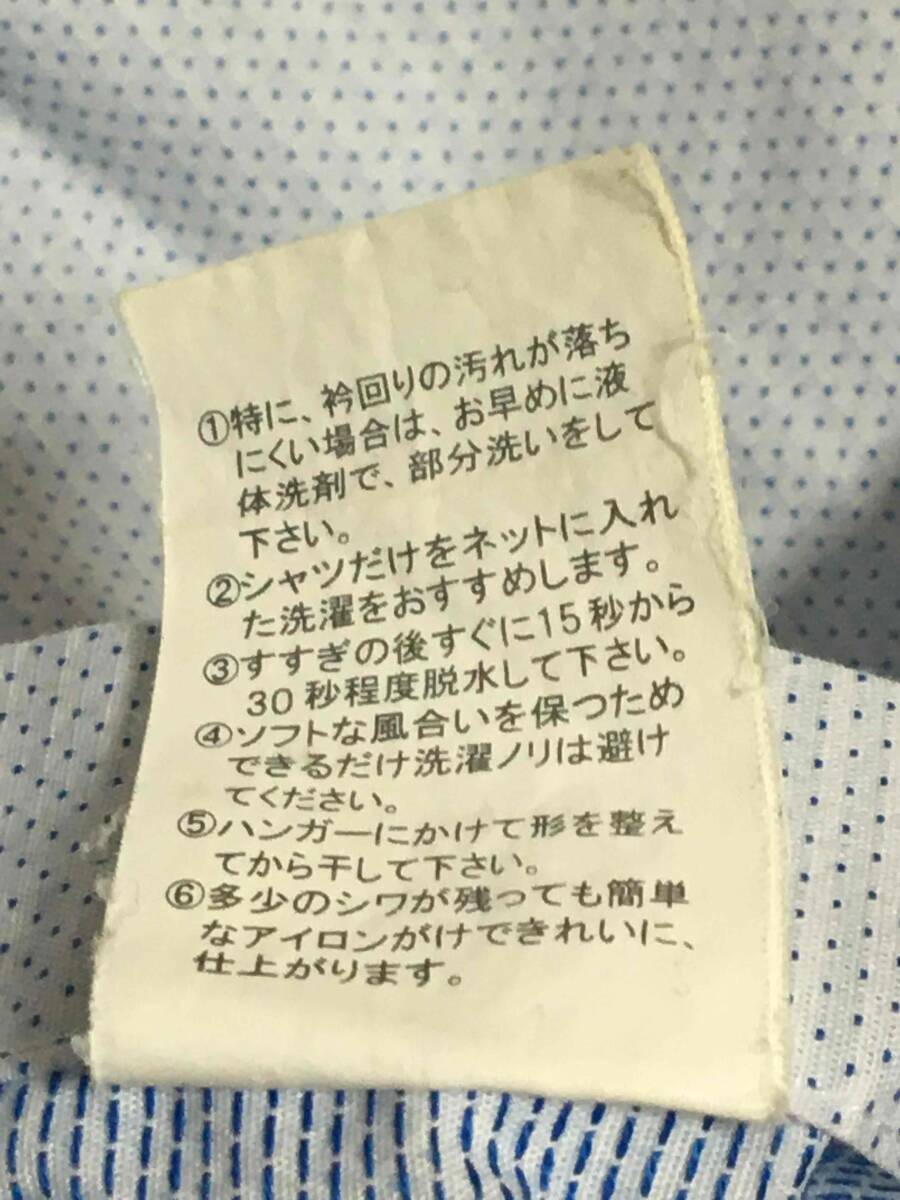 ①特に、衿回りの汚れが落ち
にくい場合は、お早めに液
体洗剤で、部分洗いをして
下さい。
②シャツだけをネットに入れ
た洗濯をおすすめします。
③すすぎの後すぐに15秒から
30秒程度脱水して下さい。
④ソフトな風合いを保つため
できるだけ洗濯ノリは避け
てください。
⑤ハンガーにかけて形を整え
てから干して下さい。
⑥多少のシワが残っても簡単
なアイロンがけできれいに、
仕上がります。